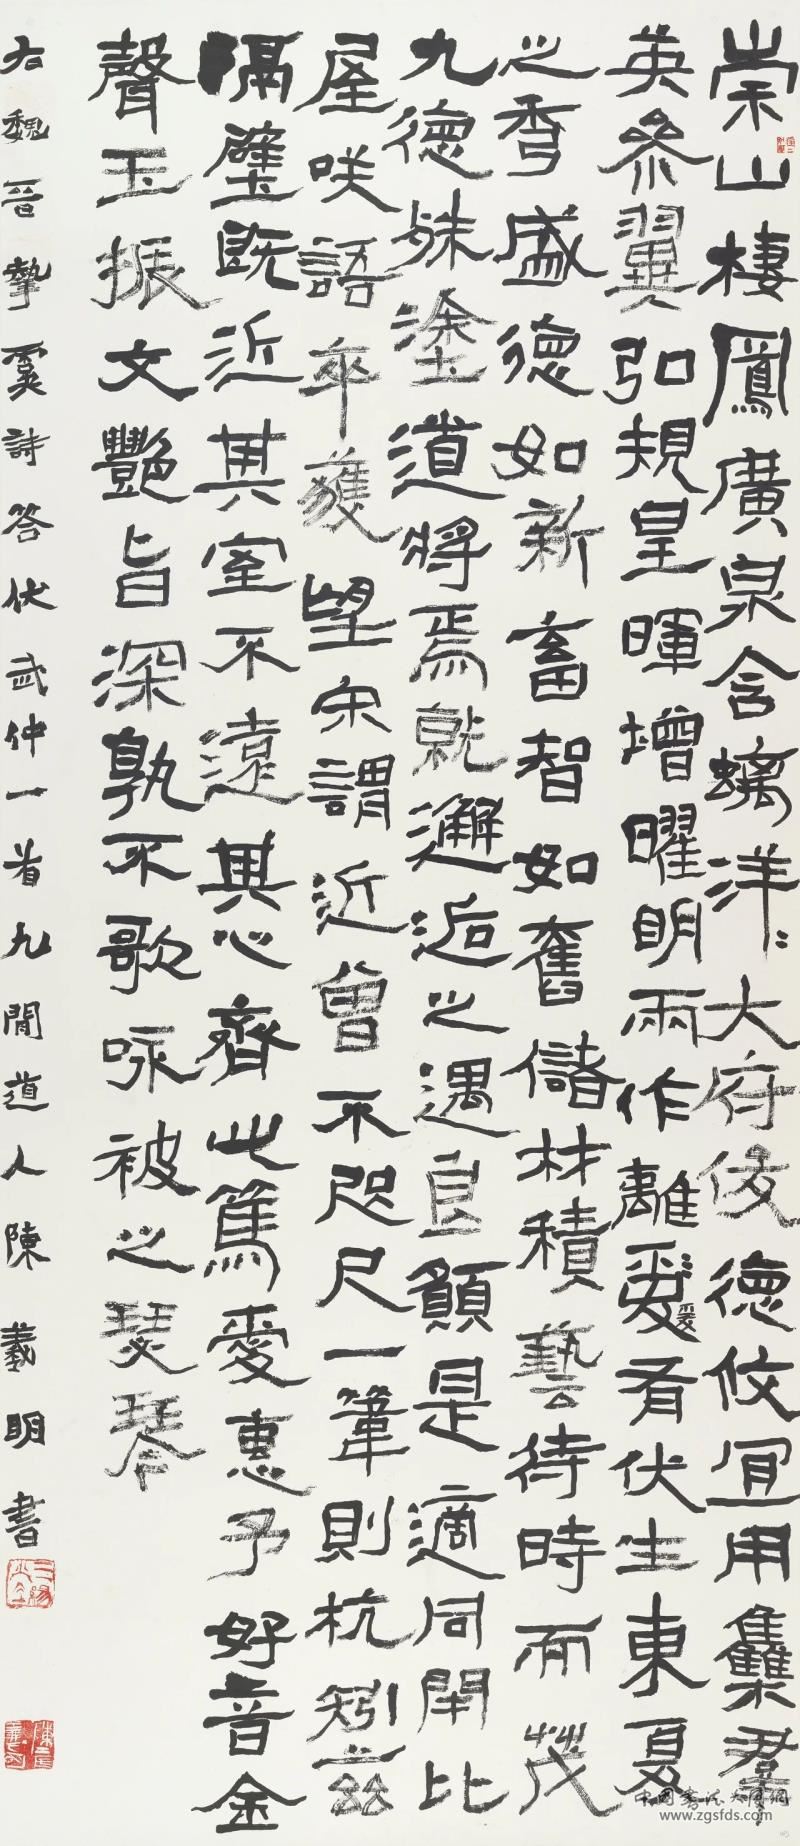 崇山棲鳳廣泉含螭洋〻大府俊德攸宜用集羣
英參翼弘規皇暉增曜明兩作離爰爰有伏生東夏
之秀盛德如新畜智如舊儲材積藝待時而茂
九德殊塗道將焉就邂逅之遇良願是適同閈比
屋咲語卒獲望宋謂近曾不咫尺一葦則杭矧茲
隔壁既近其室不遠其心齊此篤愛惠予好音金
聲玉振文艷旨深孰不歌咏被之瑟琴
右魏晉摯虞詩答伏武仲一首九閒道人陳羲明書
中国书法大厦网
www.zgsfds.com